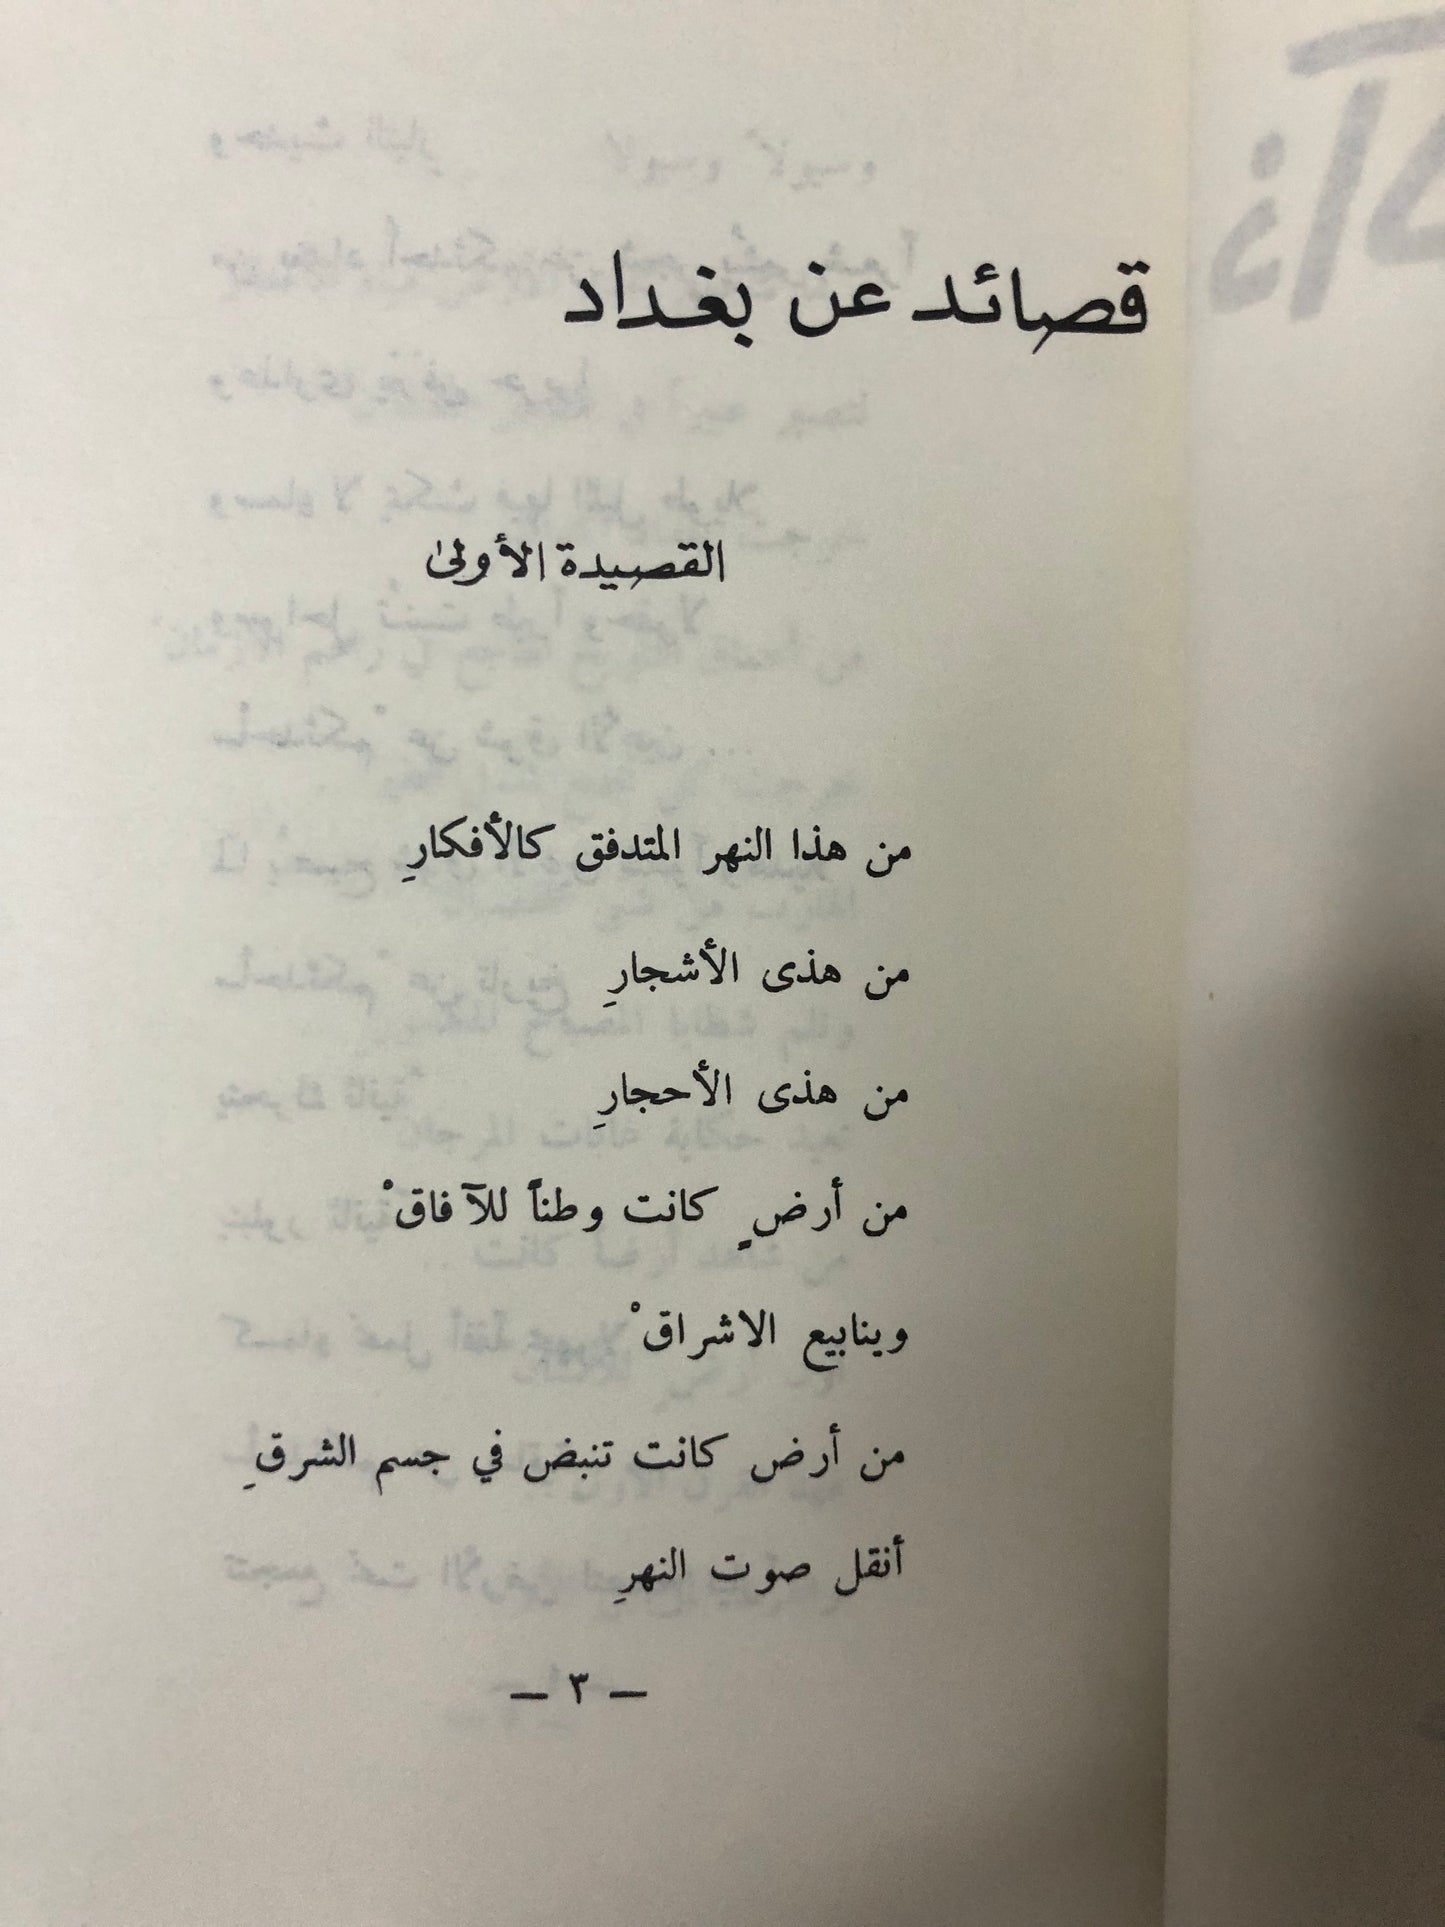 قصائد عن بغداد
القصيدة الأولىٰ
من هذا النهر المتدفق كالأفكارِ
من هذى الأشجارِ
من هذى الأحجارِ
من أرضٍ كانت وطناً للآفاقْ
وينابيع الاشراقْ
من أرض كانت تنبض في جسم الشرقِ
أنقل صوت النهرِ
— ٣ —